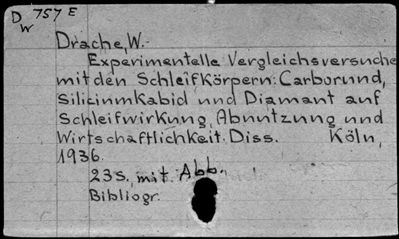 D 757 E
W
Drache, W.
Experimentelle Vergleichsversuche
mit den Schleifkörpern: Carborund,
Siliziumkabid und Diamant auf
Schleifwirkung, Abnutzung und
Wirtschaftlichkeit. Diss. Köln,
1936.
23 S. mit Abb.
Bibliogr.